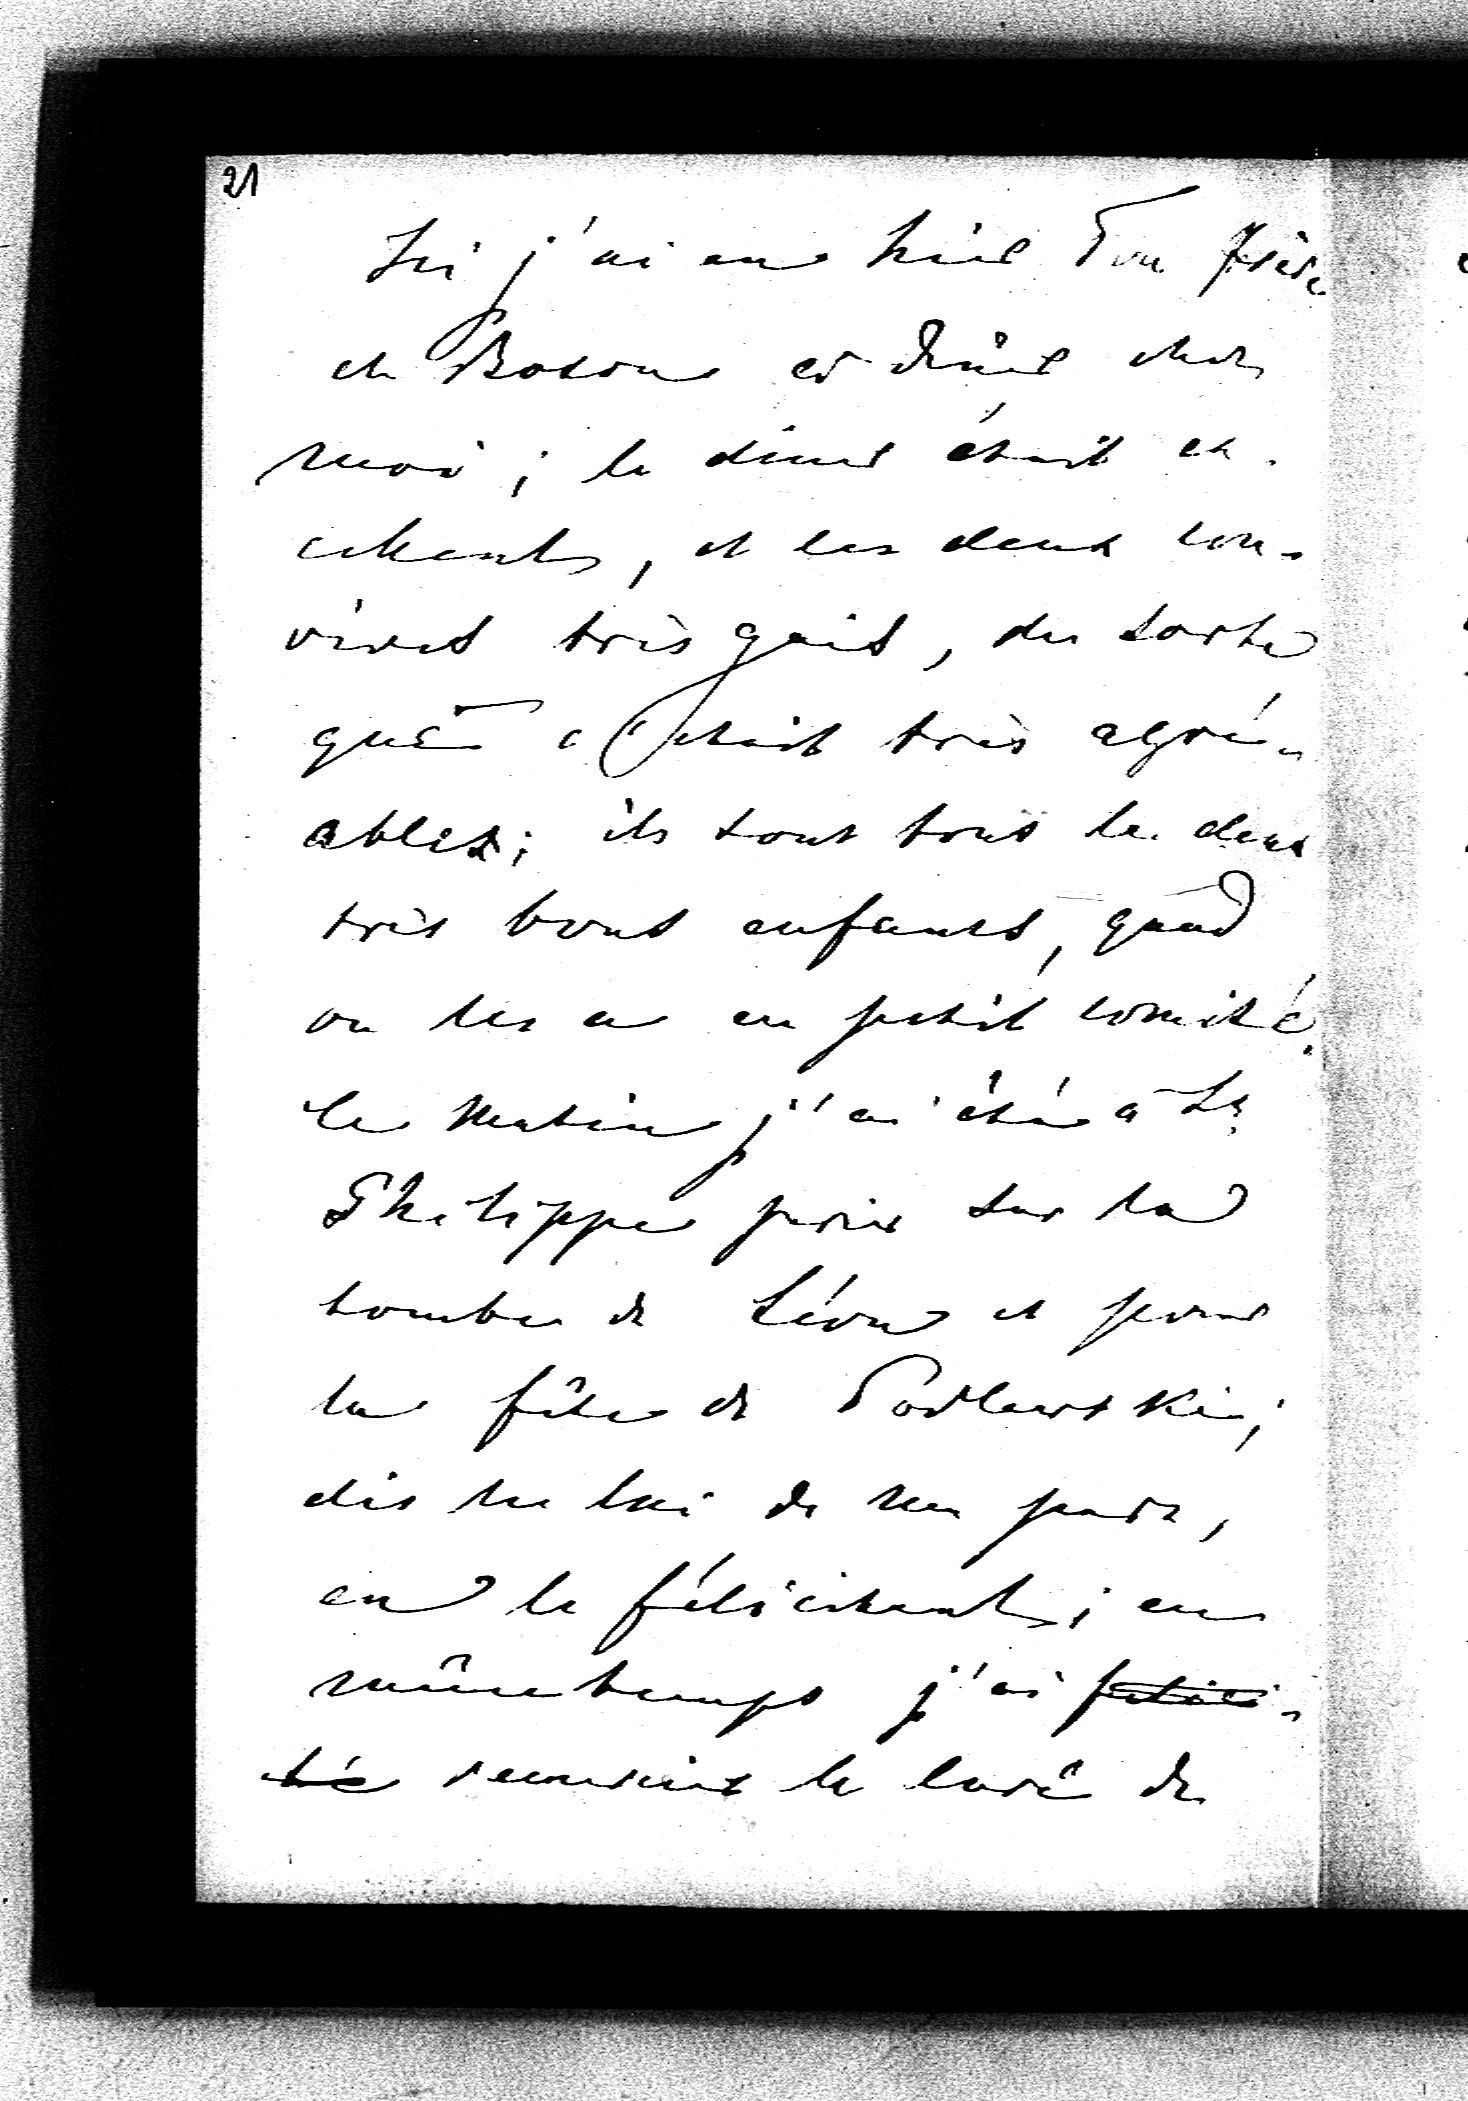 21
Ici j'ai eu hier Ton frère
et Boson à dîner chez
moi ; le diner était ex-
cellent, et les deux con-
vives très gais, de sorte
que c'était très agré-
ables; ils sont tous les deux
très bons enfants, quand
on les a en petit comité.
le matin j'ai été à St
Philippe prier sur la
tombe de Léon et pour
la fête de Podlewski;
dis le lui de ma part,
en le félicitant; en
même temps j'ai félici-
té remercié le curé de